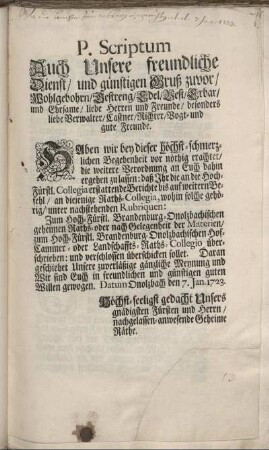 P. Scriptum
Auch Unsere freundliche
Dienst/ und günstigen Gruß zuvor/
Wohlgebohrn/ Gestreng/ Edel/ Vest/ Erbar/
und Ehrsame/ liebe Herren und Freunde/ besonders
liebe Verwalter/ Castner/ Richter/ Vogt- und
gute Freunde.
Haben wir bey dieser höchst-schmertz-
lichen Begebenheit vor nöthig erachtet/
die weitere Verordnung an Euch dahin
ergehen zu lassen: daß Ihr die an die Hoch-
Fürstl. Collegia erstattende Berichte bis auf weitern Be-
fehl/ an diejenige Raths-Collegia, wohin solche gehö-
rig/ unter nachstehenden Rubriquen:
Zum Hoch-Fürstl. Brandenburg-Onolzbachischen
geheimen Raths- oder nach Gelegenheit der Materien/
zum Hoch-Fürstl. Brandenburg-Onolzbachischen Hof-
Cammer- oder Landschaffts-Raths-Collegio über-
schrieben: und verschlossen überschicken sollet. Daran
geschiehet Unsere zuverläßige gäntzliche Meynung und
Wir sind Euch in freundlichen und günstigen guten
Willen gewogen. Datum Onolzbach den 7. Jan. 1723.
Höchst-seeligst gedacht Unsers
gnädigsten Fürsten und Herrn/
nachgelassen-anwesende Geheime
Räthe.